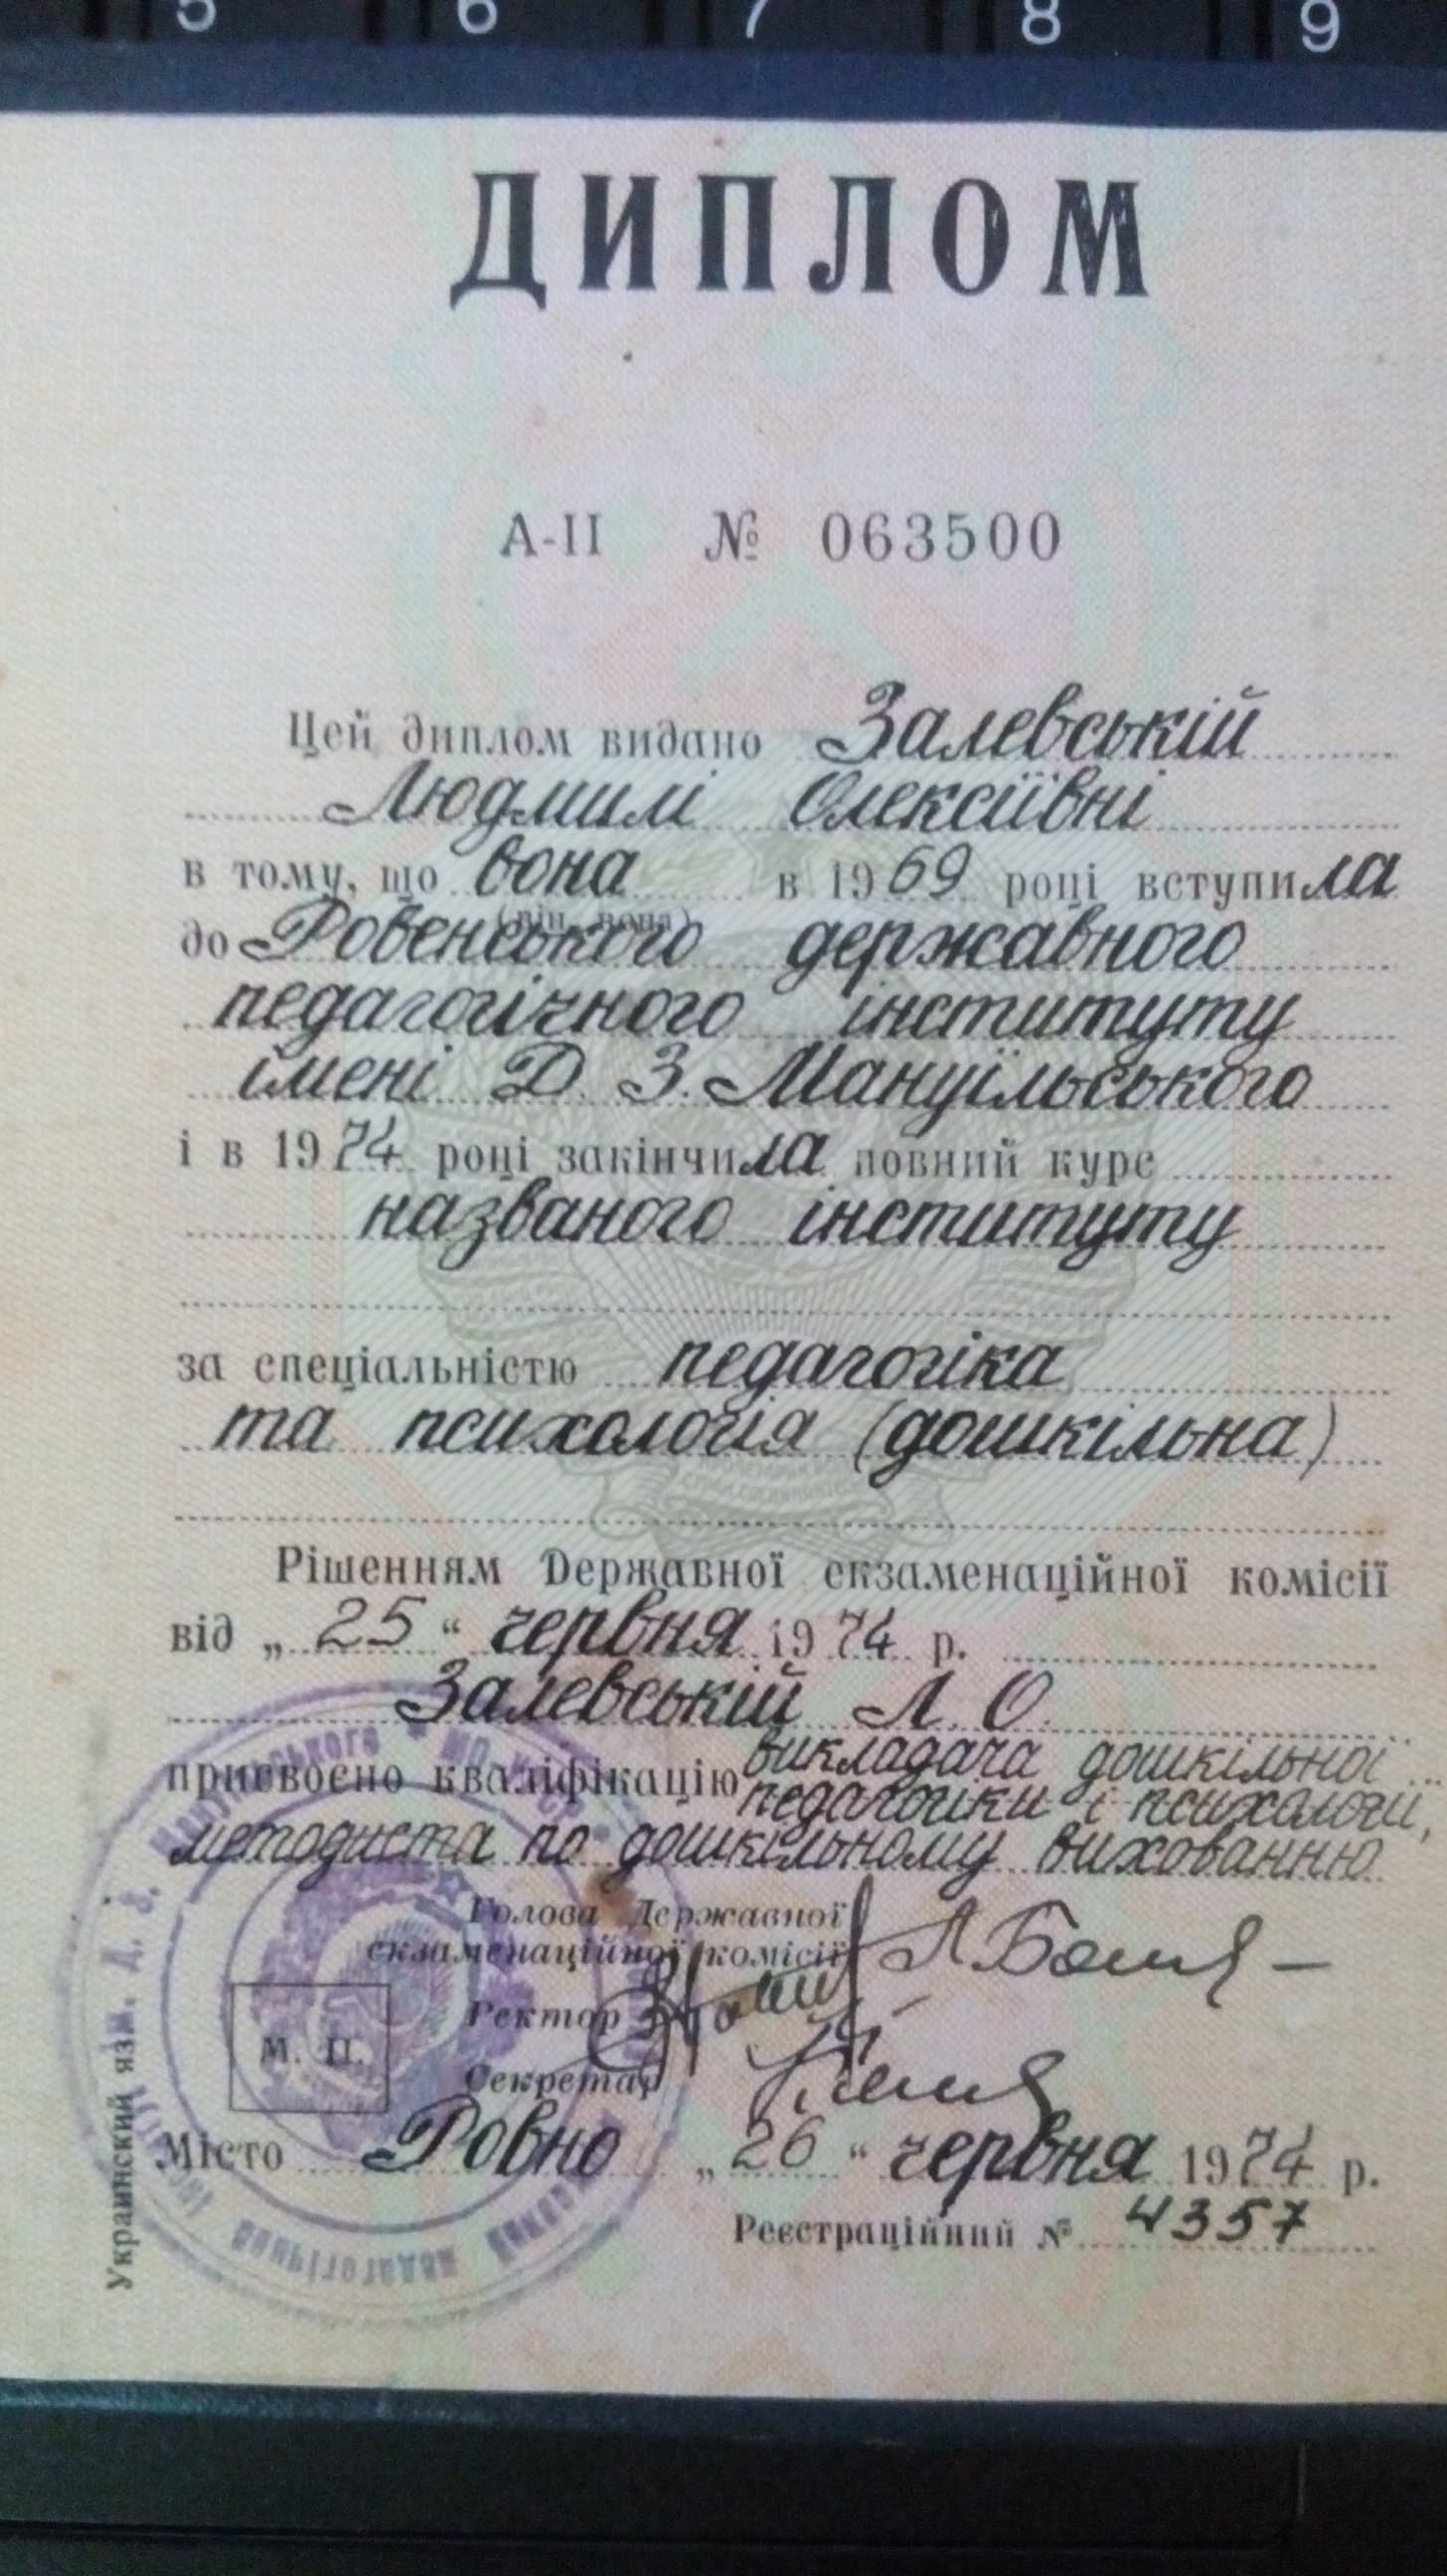 5 6 7 8 9
ДИПЛОМ
А-II № 063500
Цей диплом видано Залевській
Людмилі Олексіївні
в тому, що вона в 1969 році вступила
(він, вона)
до Ровенського державного
педагогічного інституту
імені Д. З. Мануїльського
і в 1974 році закінчила повний курс
названого інституту
за спеціальністю педагогіка
та психологія (дошкільна)
Рішенням Державної екзаменаційної комісії
від „25“ червня 1974 р.
Залевській Л. О.
присвоєно кваліфікацію викладача дошкільної
педагогіки і психології,
методиста по дошкільному вихованню
Голова Державної
екзаменаційної комісії
Ректор
М. П.
Секретар
Місто Ровно „26“ червня 1974 р.
Реєстраційний № 4357
Украинский яз.